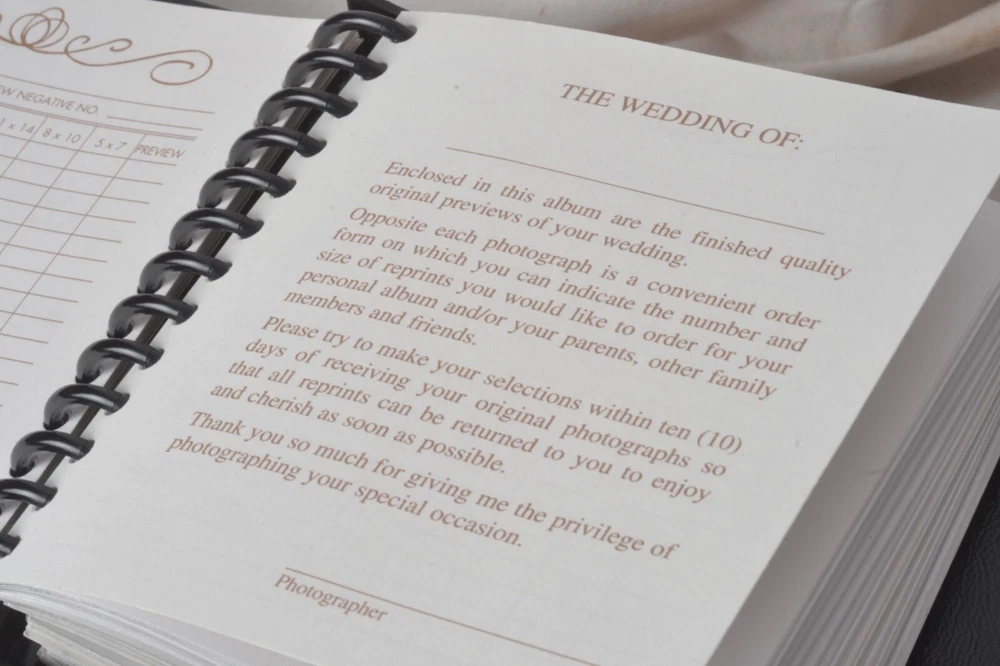 NEGATIVE NO.
14 8 x 10 5 x 7 PREVIEW
THE WEDDING OF:
Enclosed in this album are the finished quality
original previews of your wedding.
Opposite each photograph is a convenient order
form on which you can indicate the number and
size of reprints you would like to order for your
personal album and/or your parents, other family
members and friends.
Please try to make your selections within ten (10)
days of receiving your original photographs so
that all reprints can be returned to you to enjoy
and cherish as soon as possible.
Thank you so much for giving me the privilege of
photographing your special occasion.
Photographer